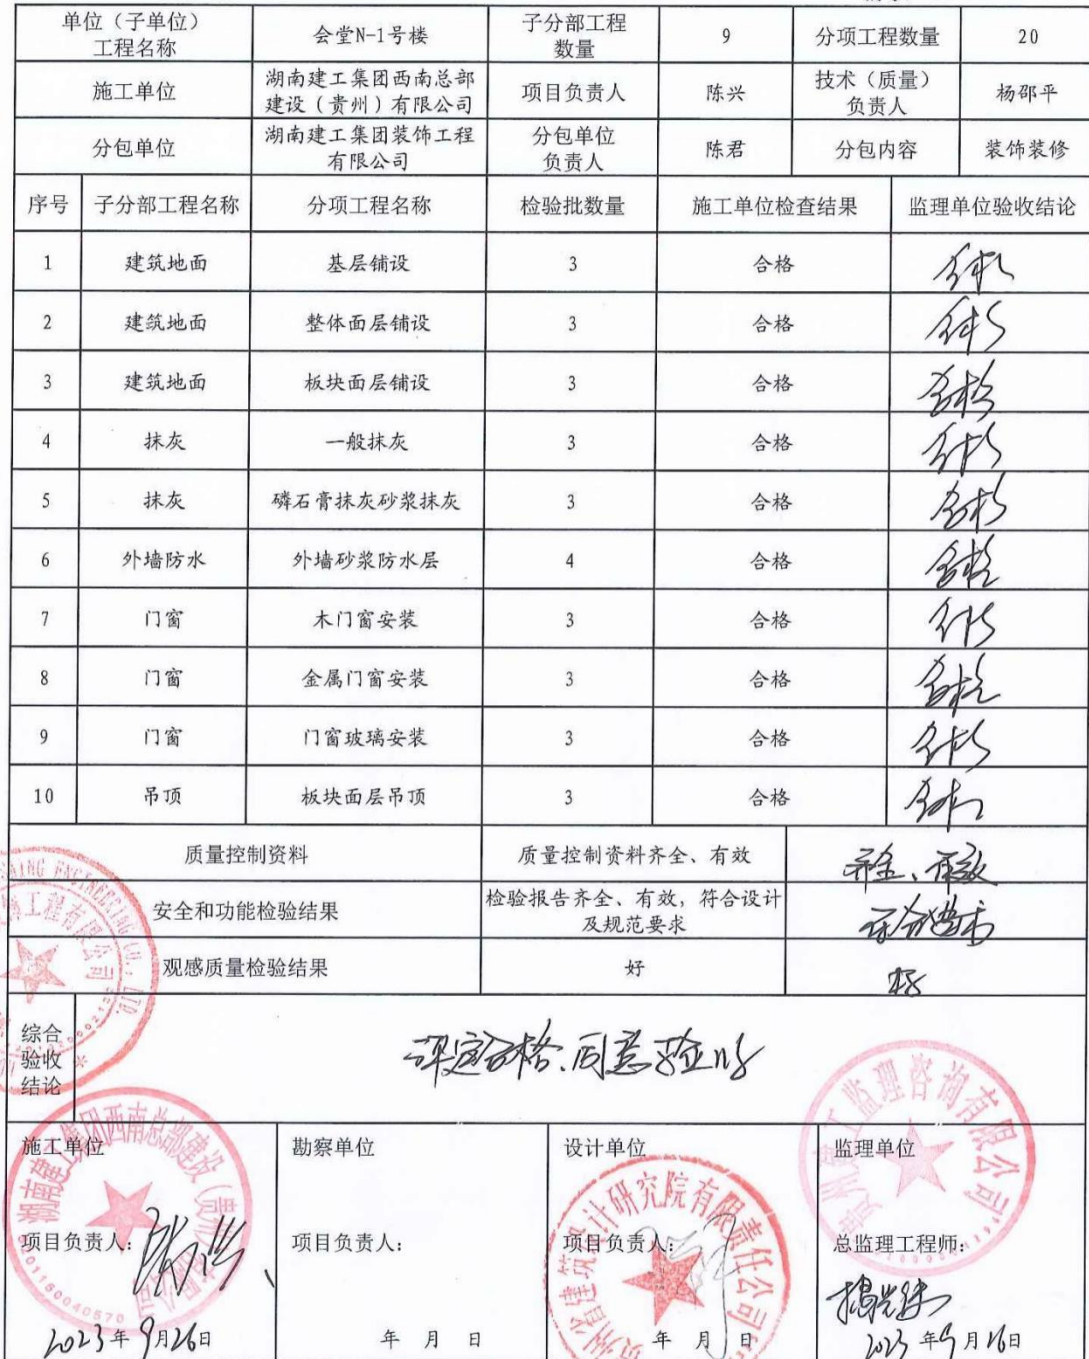 单位（子单位）
工程名称
会堂N-1号楼
子分部工程
数量
9
分项工程数量
20
施工单位
湖南建工集团西南总部
建设（贵州）有限公司
项目负责人
陈兴
技术（质量）
负责人
杨邵平
分包单位
湖南建工集团装饰工程
有限公司
分包单位
负责人
陈君
分包内容
装饰装修
序号 子分部工程名称 分项工程名称 检验批数量 施工单位检查结果 监理单位验收结论
1 建筑地面 基层铺设 3 合格 合格
2 建筑地面 整体面层铺设 3 合格 合格
3 建筑地面 板块面层铺设 3 合格 合格
4 抹灰 一般抹灰 3 合格 合格
5 抹灰 磷石膏抹灰砂浆抹灰 3 合格 合格
6 外墙防水 外墙砂浆防水层 4 合格 合格
7 门窗 木门窗安装 3 合格 合格
8 门窗 金属门窗安装 3 合格 合格
9 门窗 门窗玻璃安装 3 合格 合格
10 吊顶 板块面层吊顶 3 合格 合格
质量控制资料 质量控制资料齐全、有效 齐全、有效
安全和功能检验结果
检验报告齐全、有效，符合设计
及规范要求
符合要求
观感质量检验结果 好
综合
验收
结论
评定合格、同意验收
施工单位 勘察单位 设计单位 监理单位
湖南建工集团西南总部建设（贵州）有限公司
项目负责人： 项目负责人： 项目负责人： 总监理工程师：
2023年9月26日 年 月 日 年 月 日 2023年9月26日